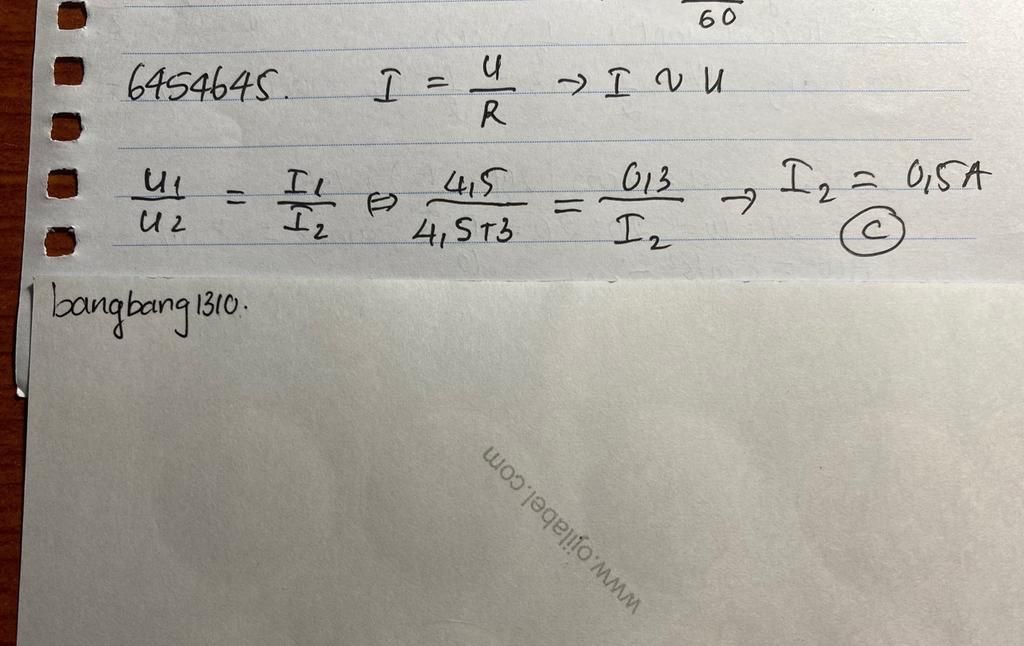 60
6454645. I = U/R → I ~ U
U1/U2 = I1/I2 ⇔ 4,5/4,5+3 = 0,3/I2 → I2 = 0,5A
C
bangbang1310.
www.ojilabel.com